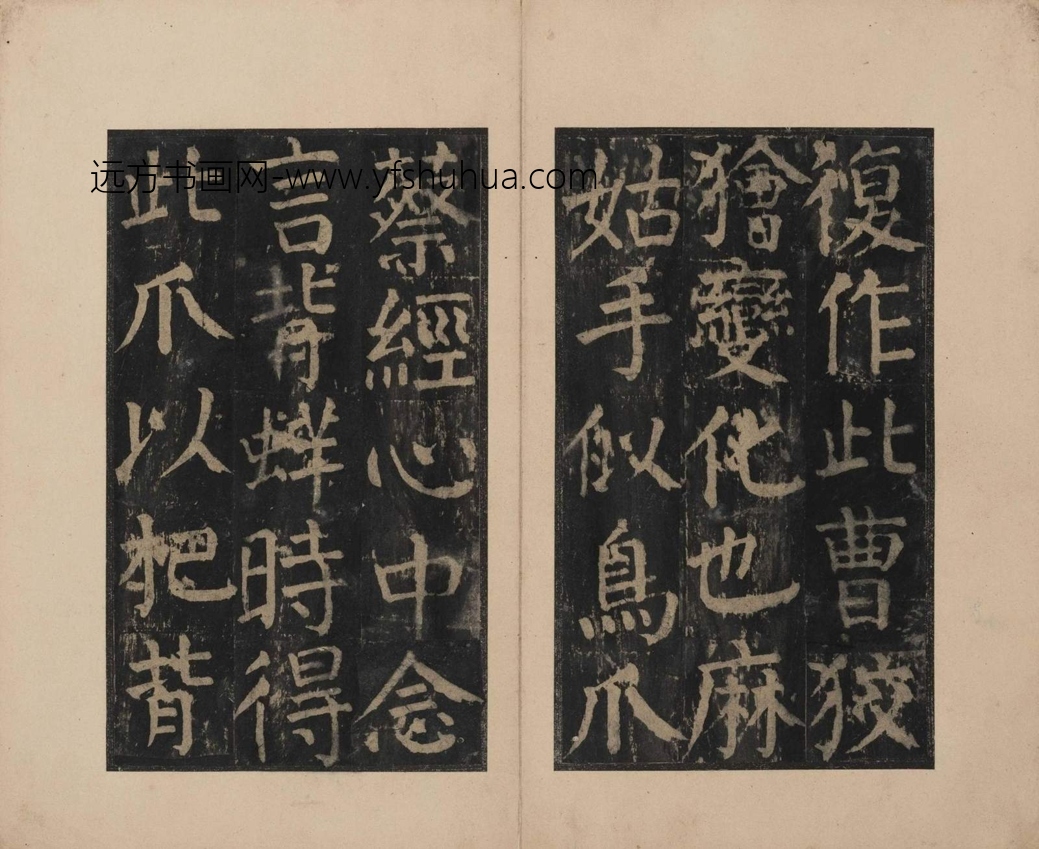 復作此曹狡
獪變化也麻
姑手似鳥爪
蔡經心中念
言背蛘時得
此爪以杷背
远方书画网-www.yfshuhua.com